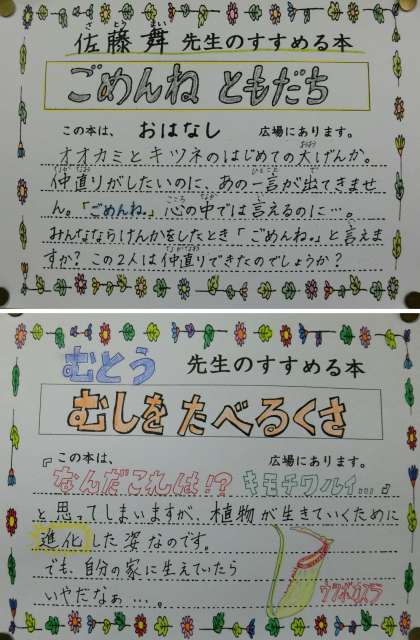 佐藤舞 先生のすすめる本
ごめんね ともだち
この本は、 おはなし 広場にあります。
オオカミとキツネのはじめての大げんか。
仲直りがしたいのに、あの一言が出てきませ
ん。「ごめんね。」心の中では言えるのに…。
みんなならけんかをしたとき「ごめんね。」と言えま
すか？この2人は仲直りできたのでしょうか？
むとう 先生のすすめる本
むしをたべるくさ
『この本は、 広場にあります。
なんだこれは!? キモチワルイ…』
と思ってしまいますが、植物が生きていくために
進化した姿なのです。
でも、自分の家に生えていたら
いやだなぁ…。
ウツボカズラ